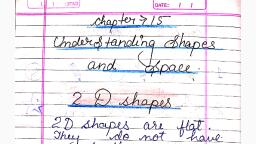 DATE:
chapter → 15
Understanding Shapes
and Space
2 D shapes
2D shapes are flat.
They do not have